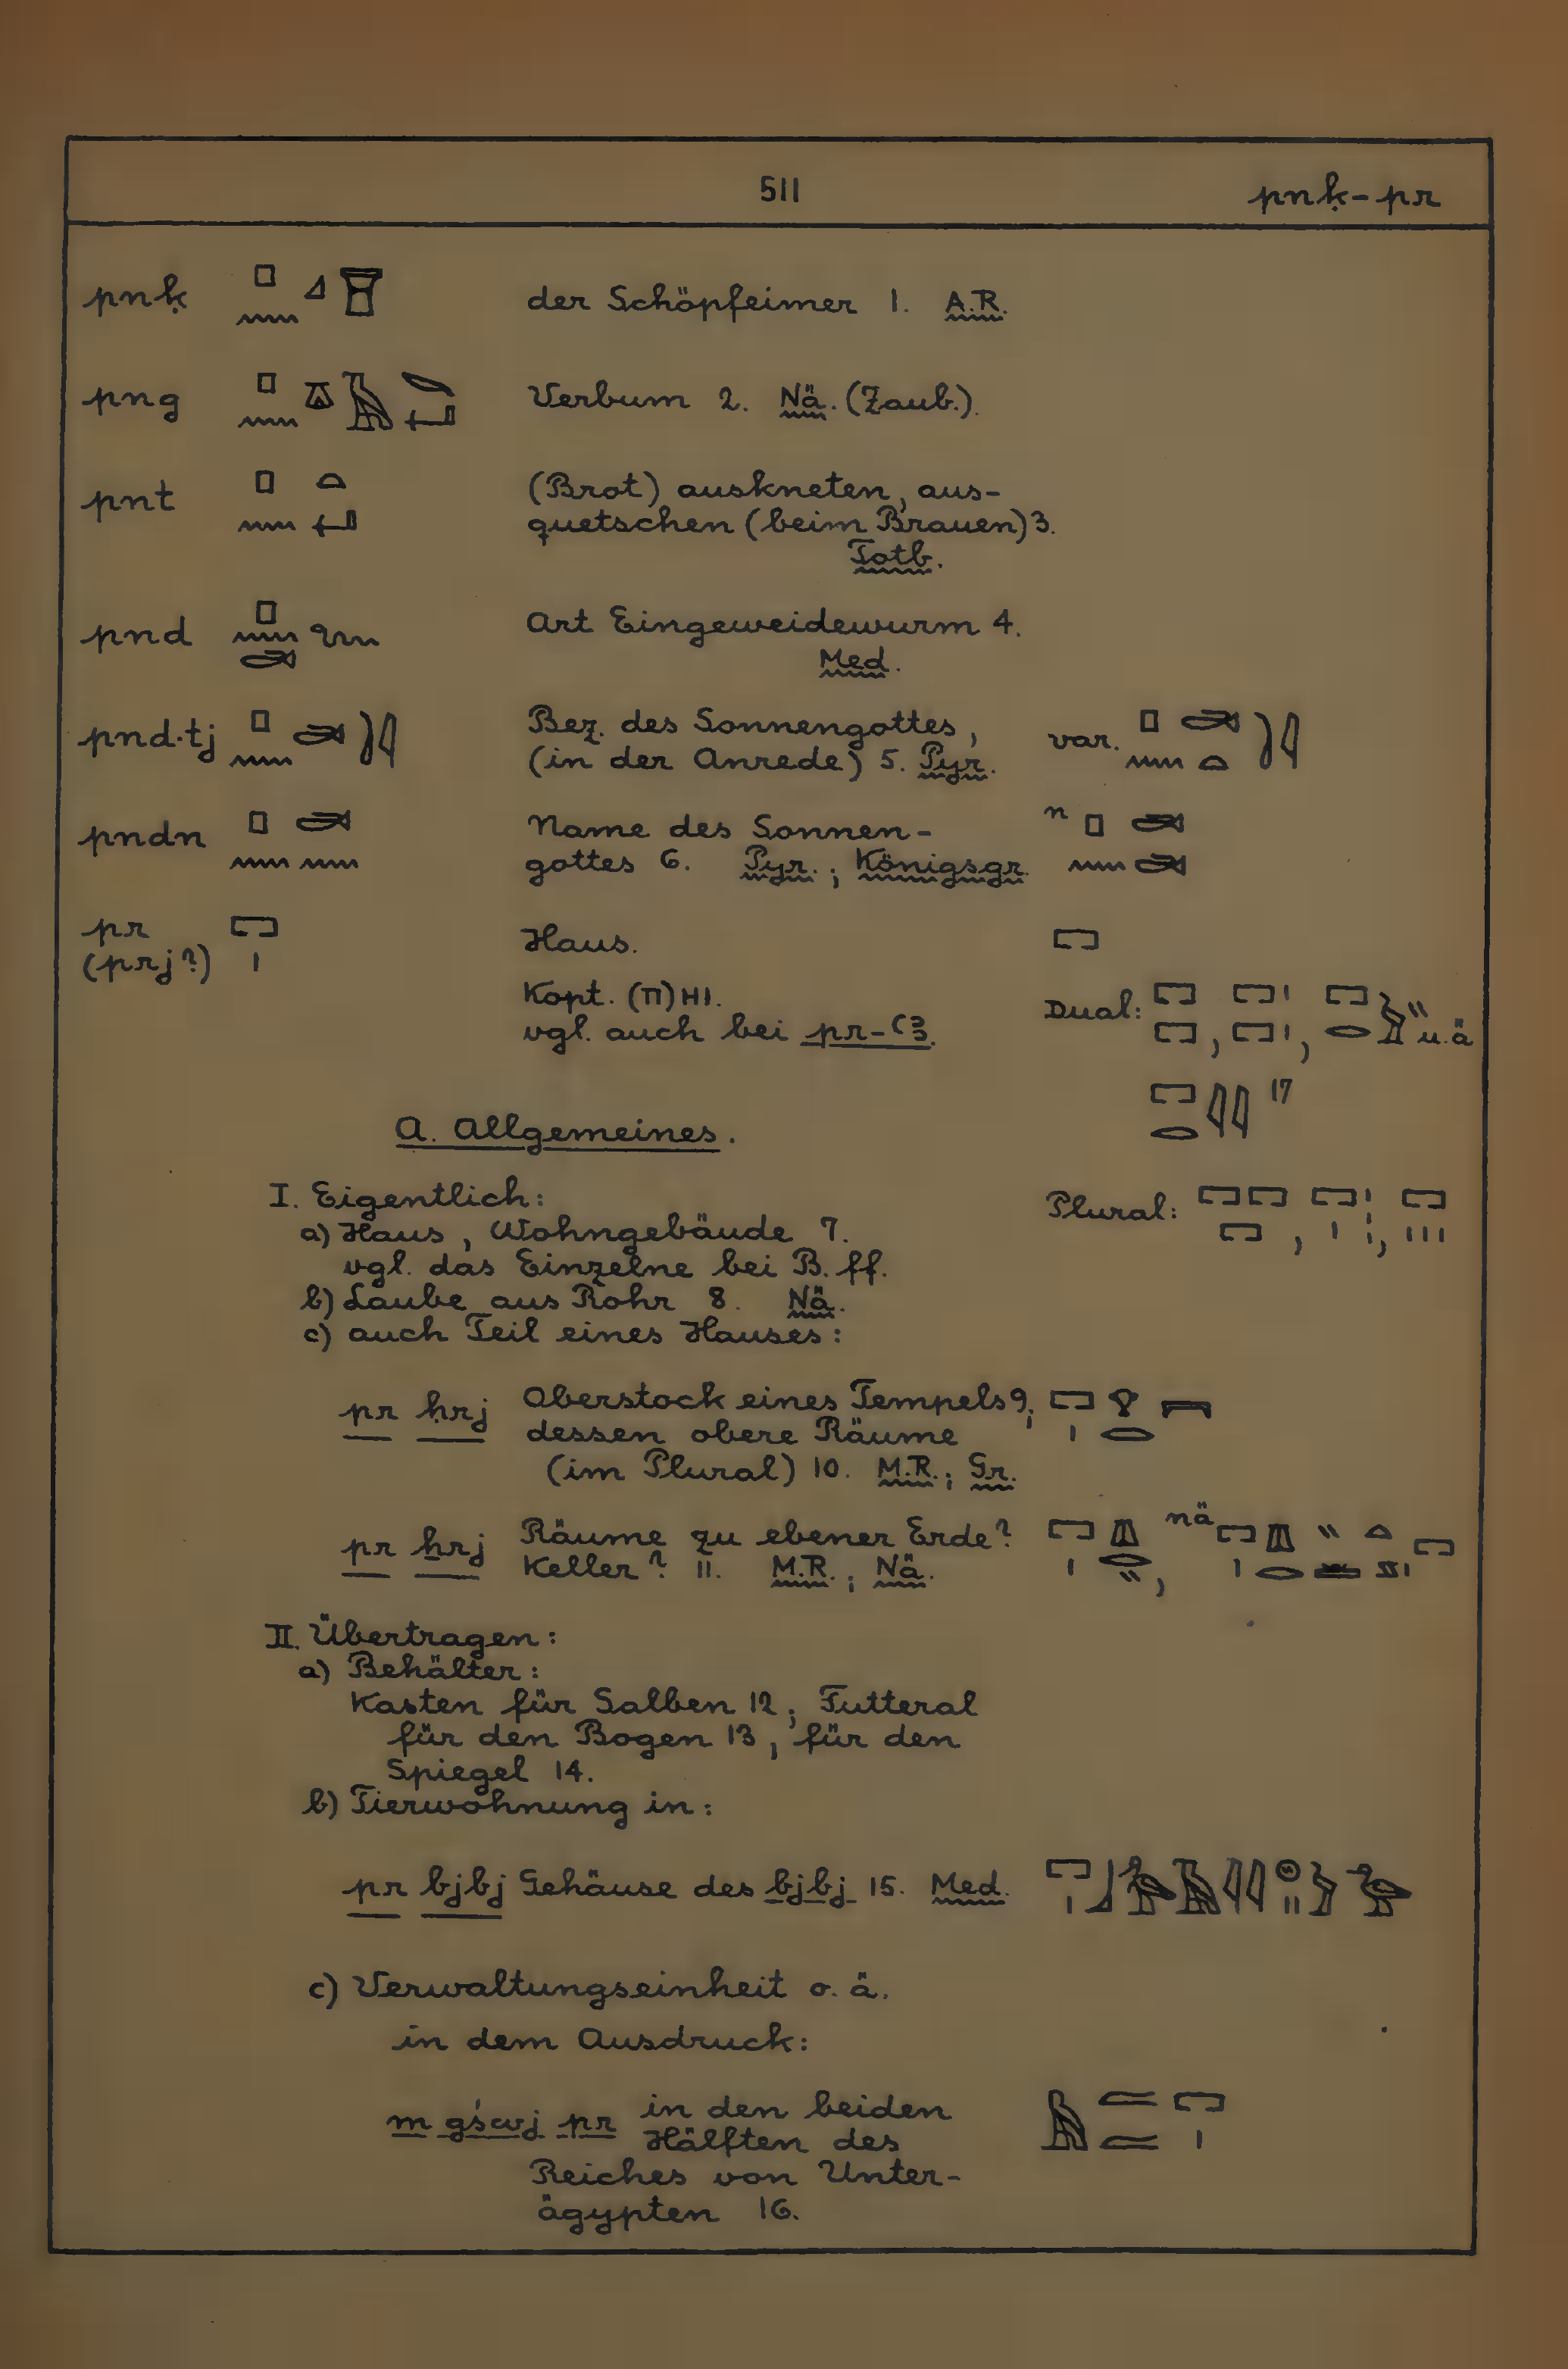 511
pnḳ - pr
pnḳ der Schöpfeimer 1. A.R.
png Verbum 2. Nä. (Zaub.).
pnt (Brot) auskneten, aus-
quetschen (beim Brauen) 3.
Totb.
pnd Art Eingeweidewurm 4.
Med.
pnd·tj Bez. des Sonnengottes, var.
(in der Anrede) 5. Pyr.
pndn Name des Sonnen- n
gottes 6. Pyr.; Königsgr.
pr Haus.
(prj?)
Kopt. (Π)HI. Dual:
vgl. auch bei pr-ꜥꜣ. u.ä
17
A. Allgemeines.
I. Eigentlich: Plural:
a) Haus, Wohngebäude 7.
vgl. das Einzelne bei B. ff.
b) Laube aus Rohr 8. Nä.
c) auch Teil eines Hauses:
pr ḥrj Oberstock eines Tempels 9;
dessen obere Räume
(im Plural) 10. M.R.; Gr.
pr ẖrj Räume zu ebener Erde? nä
Keller? 11. M.R.; Nä.
II. Übertragen:
a) Behälter:
Kasten für Salben 12; Futteral
für den Bogen 13, für den
Spiegel 14.
b) Tierwohnung in:
pr bjbj Gehäuse des bjbj 15. Med.
c) Verwaltungseinheit o. ä.
in dem Ausdruck:
m gśwj pr in den beiden
Hälften des
Reiches von Unter-
ägypten 16.